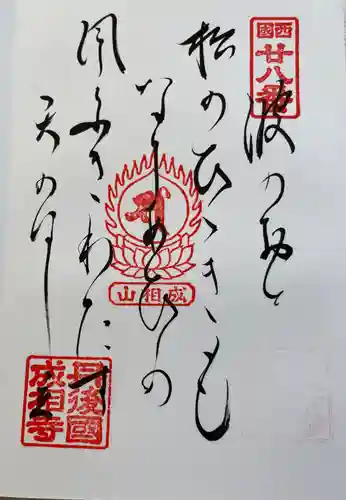 西國
廿八番
波のおと
松のひゞきも
なりあひの
風ふきわたす
天のはし立
成相山
丹後國
成相寺